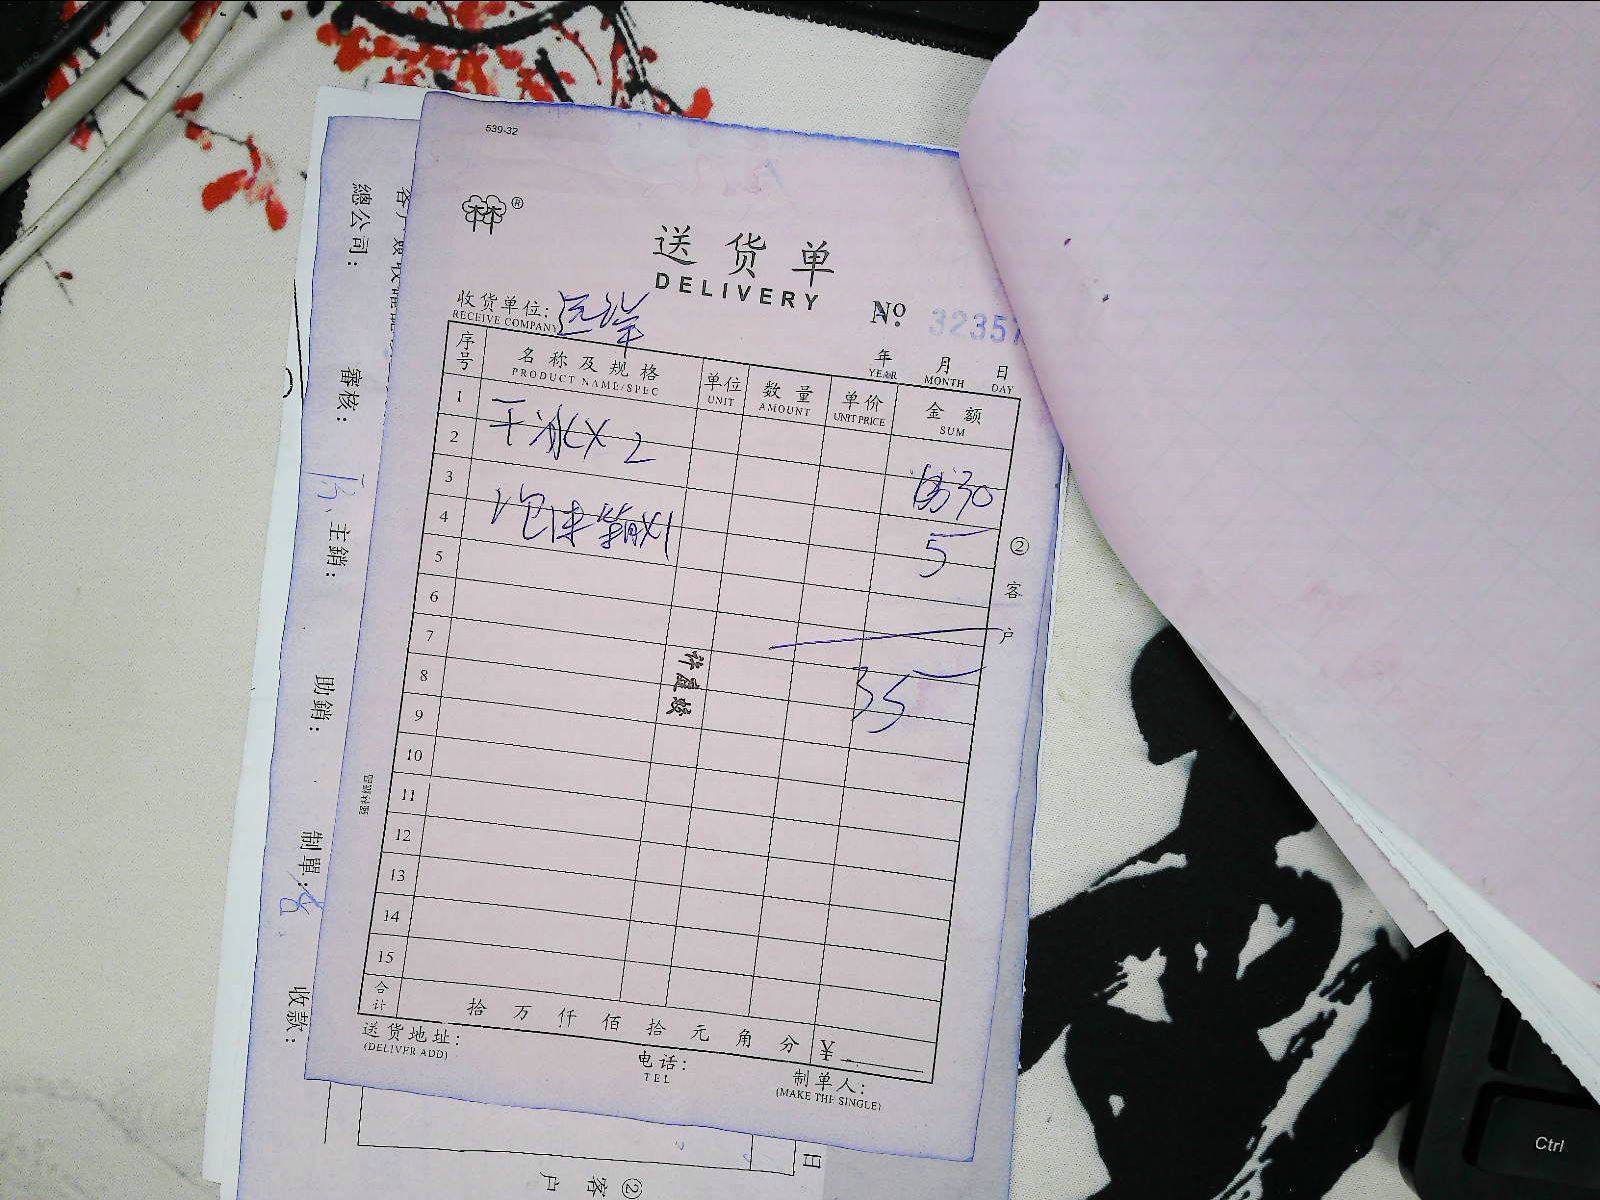 539-32
林®
送货单
DELIVERY
收货单位: 远洋
RECEIVE COMPANY
№ 32357
年 月 日
YEAR MONTH DAY
序号 名称及规格 单位 数量 单价 金额
PRODUCT NAME/SPEC UNIT AMOUNT UNIT PRICE SUM
1
2 干冰X2
3 30
4 泡沫箱X1 5
5
6
7
8 35
9
10
11
12
13
14
15
合计 拾 万 仟 佰 拾 元 角 分 ¥
送货地址:
(DELIVER ADD)
电话:
TEL
制单人:
(MAKE THE SINGLE)
②客户
總公司:
審核:
主銷:
助銷:
制單:
收款:
日
②客户
Ctrl